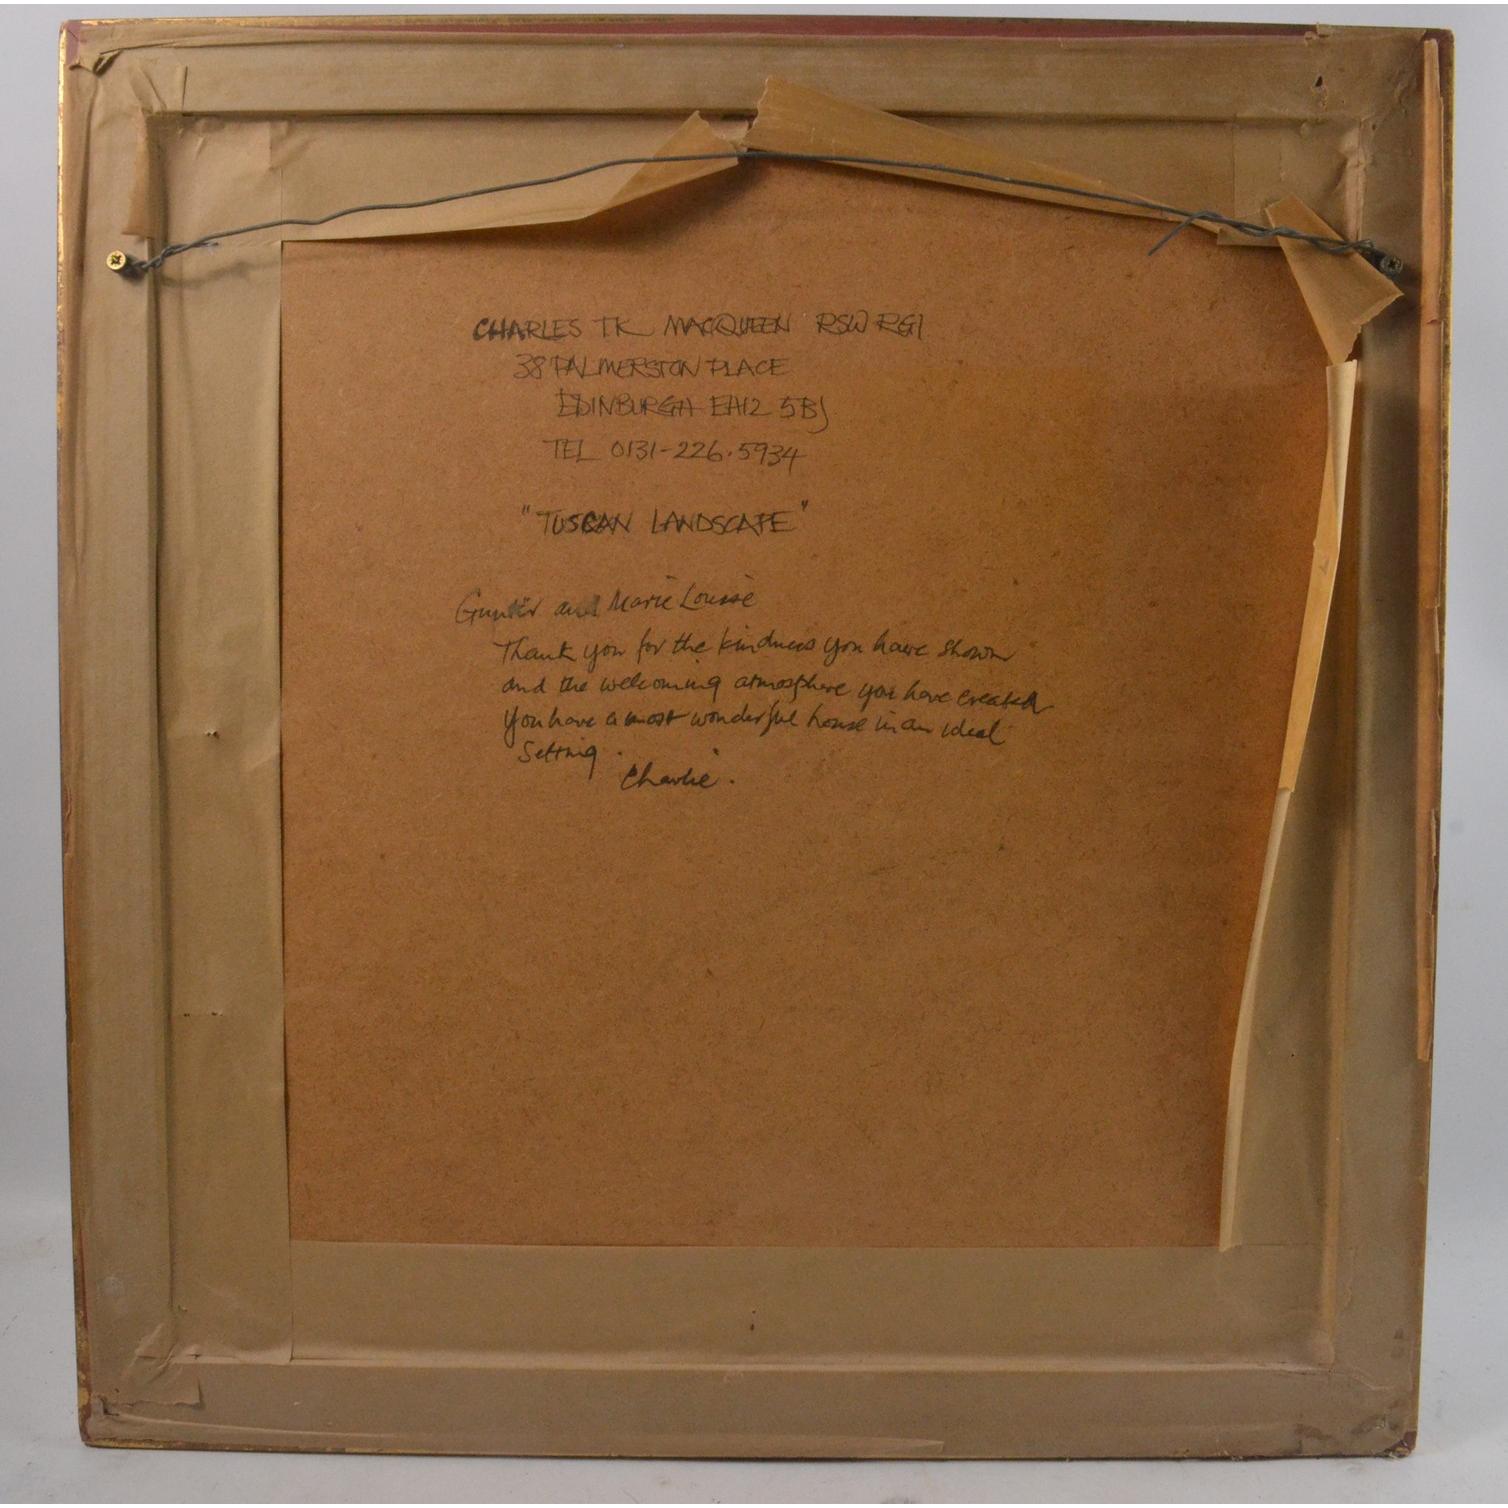 CHARLES TK MACQUEEN RSW RGI
38 PALMERSTON PLACE
EDINBURGH EH12 5BJ
TEL 0131-226.5934
"TUSCAN LANDSCAPE"
Gunter and Marie Louise
Thank you for the kindness you have shown
and the welcoming atmosphere you have created
You have a most wonderful house in an ideal
Setting.
Charlie.